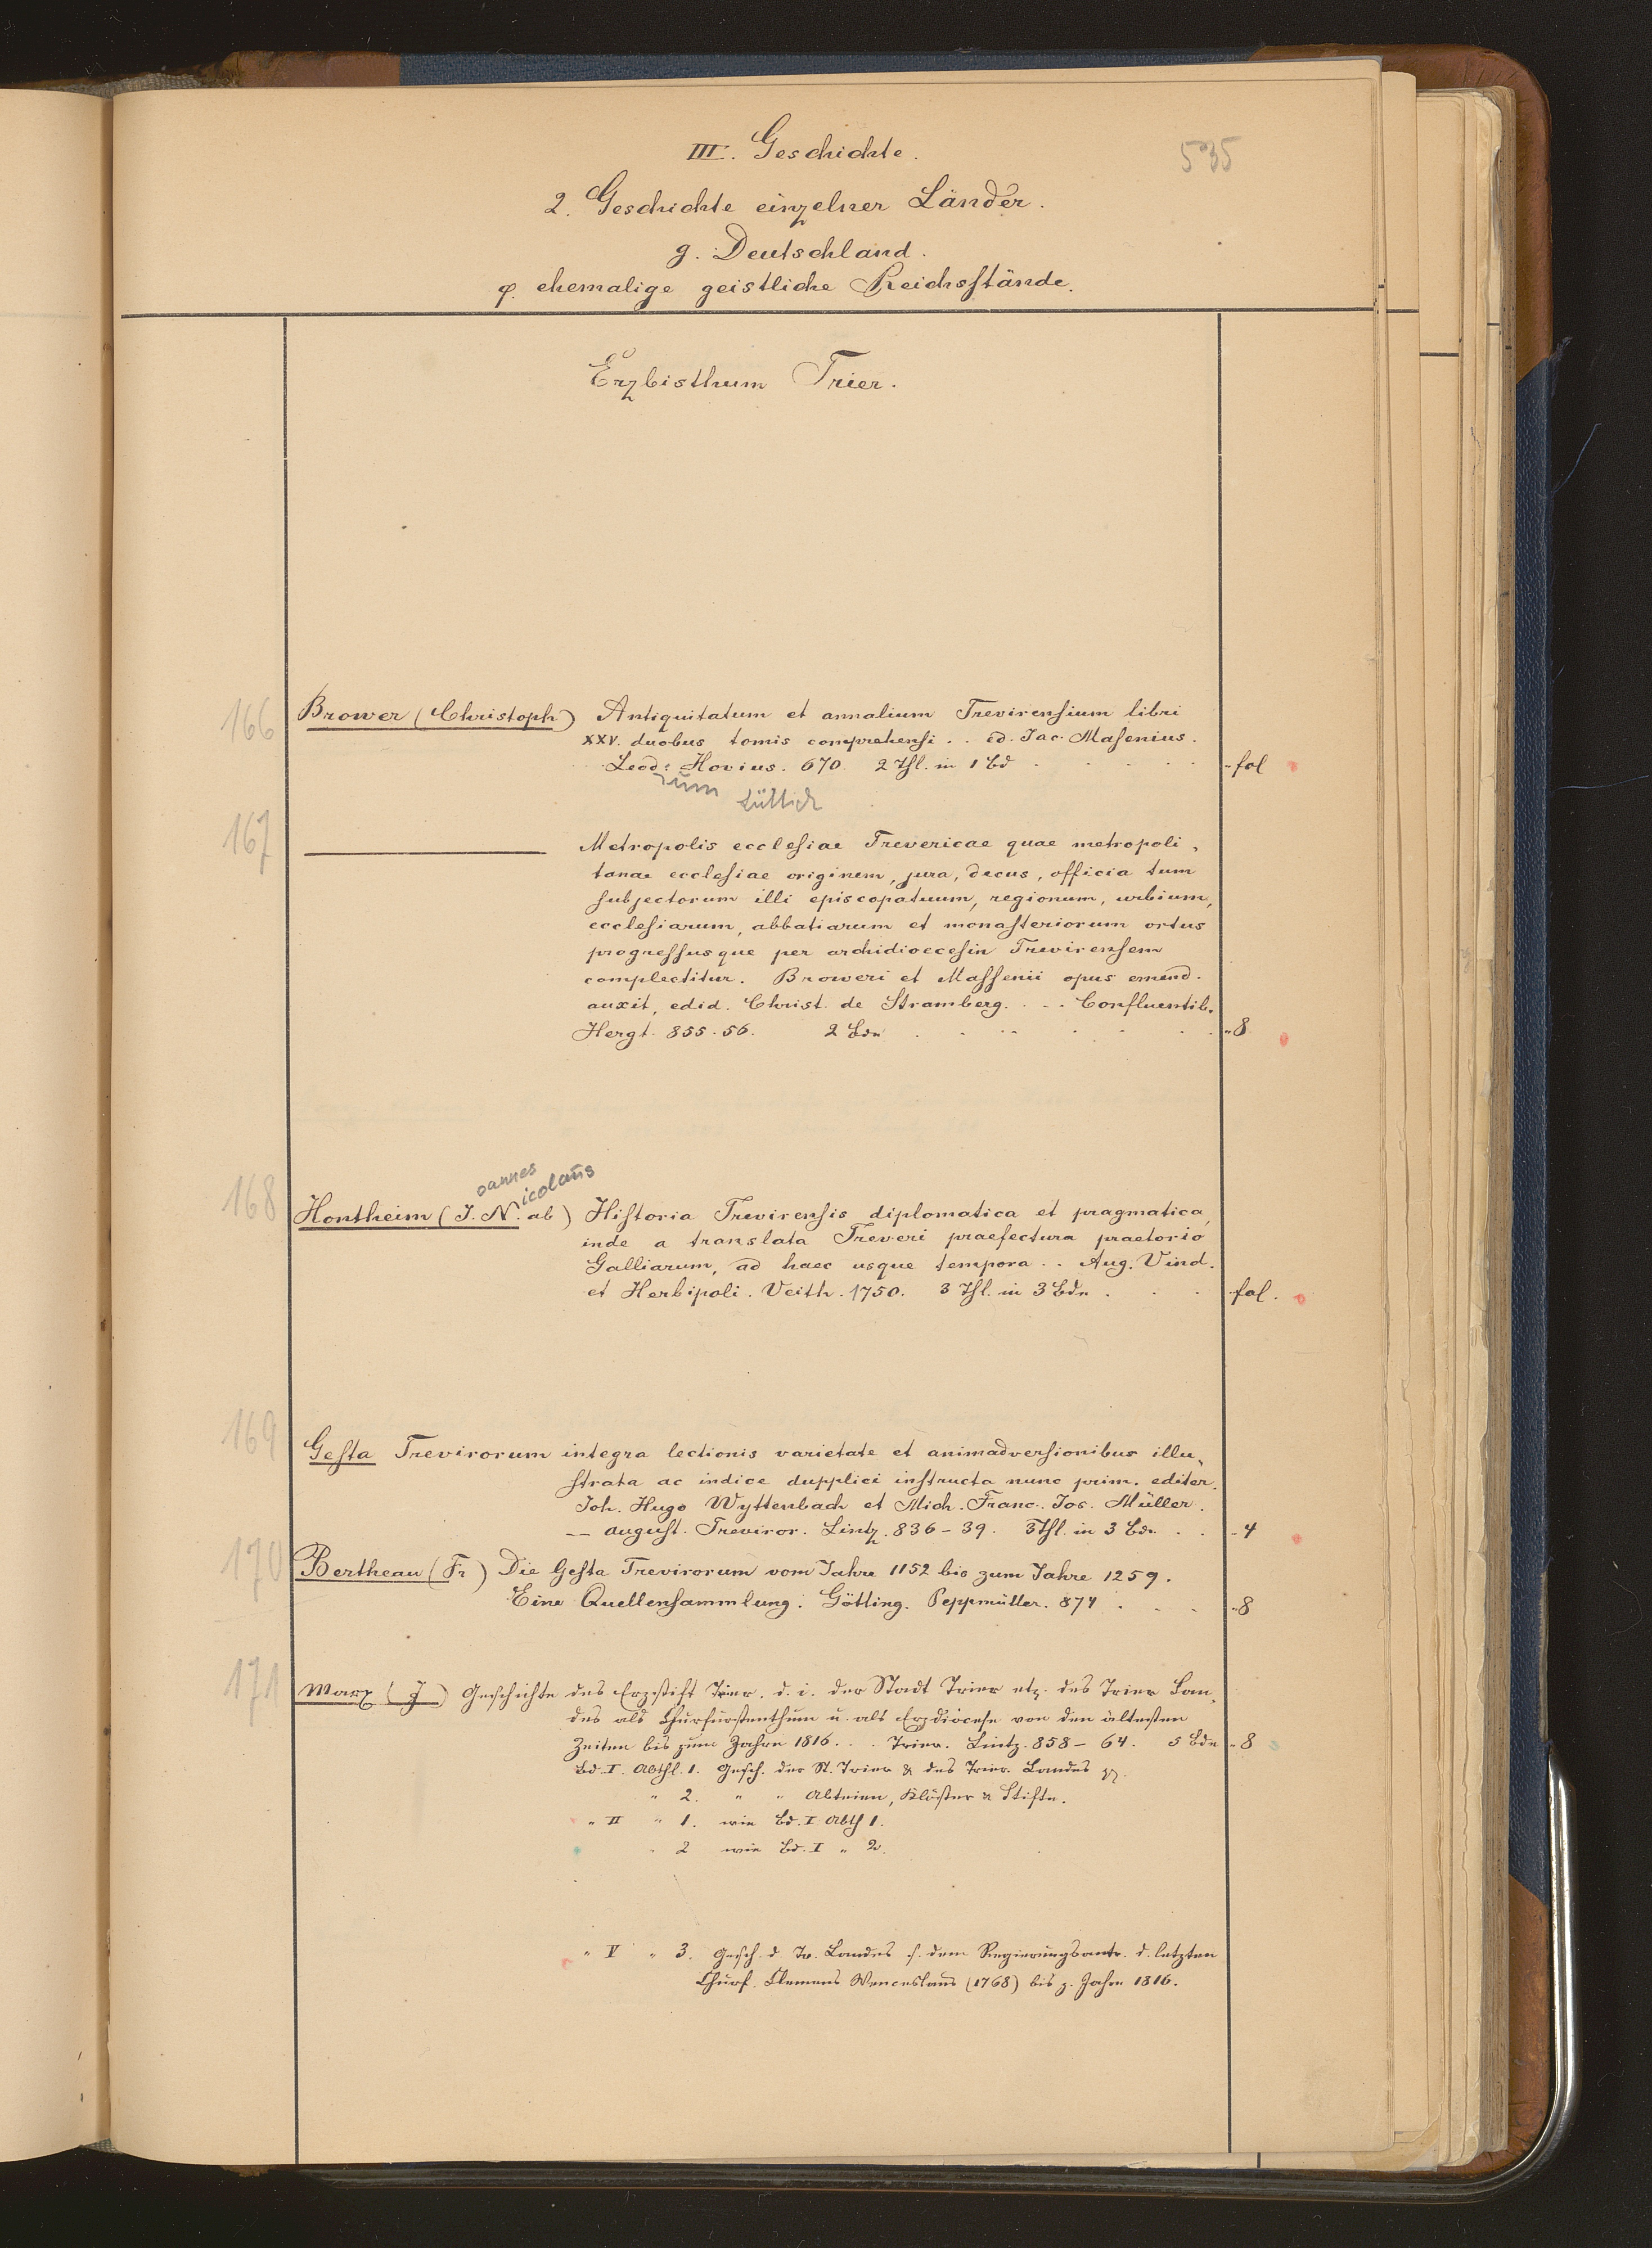 535
III. Geschichte.
2. Geschichte einzelner Länder.
g. Deutschland.
φ. ehemalige geistliche Reichsstände.
Erzbisthum Trier.
166 Brower (Christoph) Antiquitatum et annalium Trevirensium libri
XXV. duobus tomis comprehensi . . ed. Jac. Masenius.
Leod: Hovius. 670. 2 Thl. in 1 Bd fol
ium Lüttich
167 ——— Metropolis ecclesiae Trevericae quae metropoli-
tanae ecclesiae originem, jura, decus, officia tum
subjectorum illi episcopatuum, regionum, urbium,
ecclesiarum, abbatiarum et monasteriorum ortus
progressusque per archidioecesin Trevirensem
complectitur. Broweri et Massenii opus emend.
auxit, edid. Christ. de Stramberg. . . . Confluentib.
Hergt. 855-56. 2 Bde 8
oannes icolaus
168 Hontheim (J. N. ab) Historia Trevirensis diplomatica et pragmatica,
inde a translata Treveri praefectura praetorio
Galliarum, ad haec usque tempora . . Aug. Vind.
et Herbipoli. Veith. 1750. 3 Thl. in 3 Bdn . . . fol.
169 Gesta Trevirorum integra lectionis varietate et animadversionibus illu-
strata ac indice dupplici instructa nunc prim. editer.
Joh. Hugo Wyttenbach et Mich. Franc. Jos. Müller.
— August. Treviror. Lintz. 836-39. 3 Thl. in 3 Bdn . . 4
170 Bertheau (Fr) Die Gesta Trevirorum vom Jahre 1152 bis zum Jahre 1259.
Eine Quellensammlung. Götting. Peppmüller. 874 . . . 8
171 Marx (J) Geschichte des Erzstift Trier. d. i. der Stadt Trier etz. des Trier Lan-
des als Churfürstenthum u. als Erzdiöcese von den ältesten
Zeiten bis zum Jahre 1816. . . Trier. Lintz. 858-64. 5 Bde 8
Bd. I. Abthl. 1. Gesch. der St. Trier & des Trier. Landes
" 2. " " Abteien, Klöster & Stifte.
" II " 1. wie Bd. I Abth 1.
" 2 wie Bd. I " 2.
" V " 3. Gesch. d Tr. Landes s. dem Regierungsantr. d. letzten
Churf. Clemens Wenceslaus (1768) bis z. Jahre 1816.